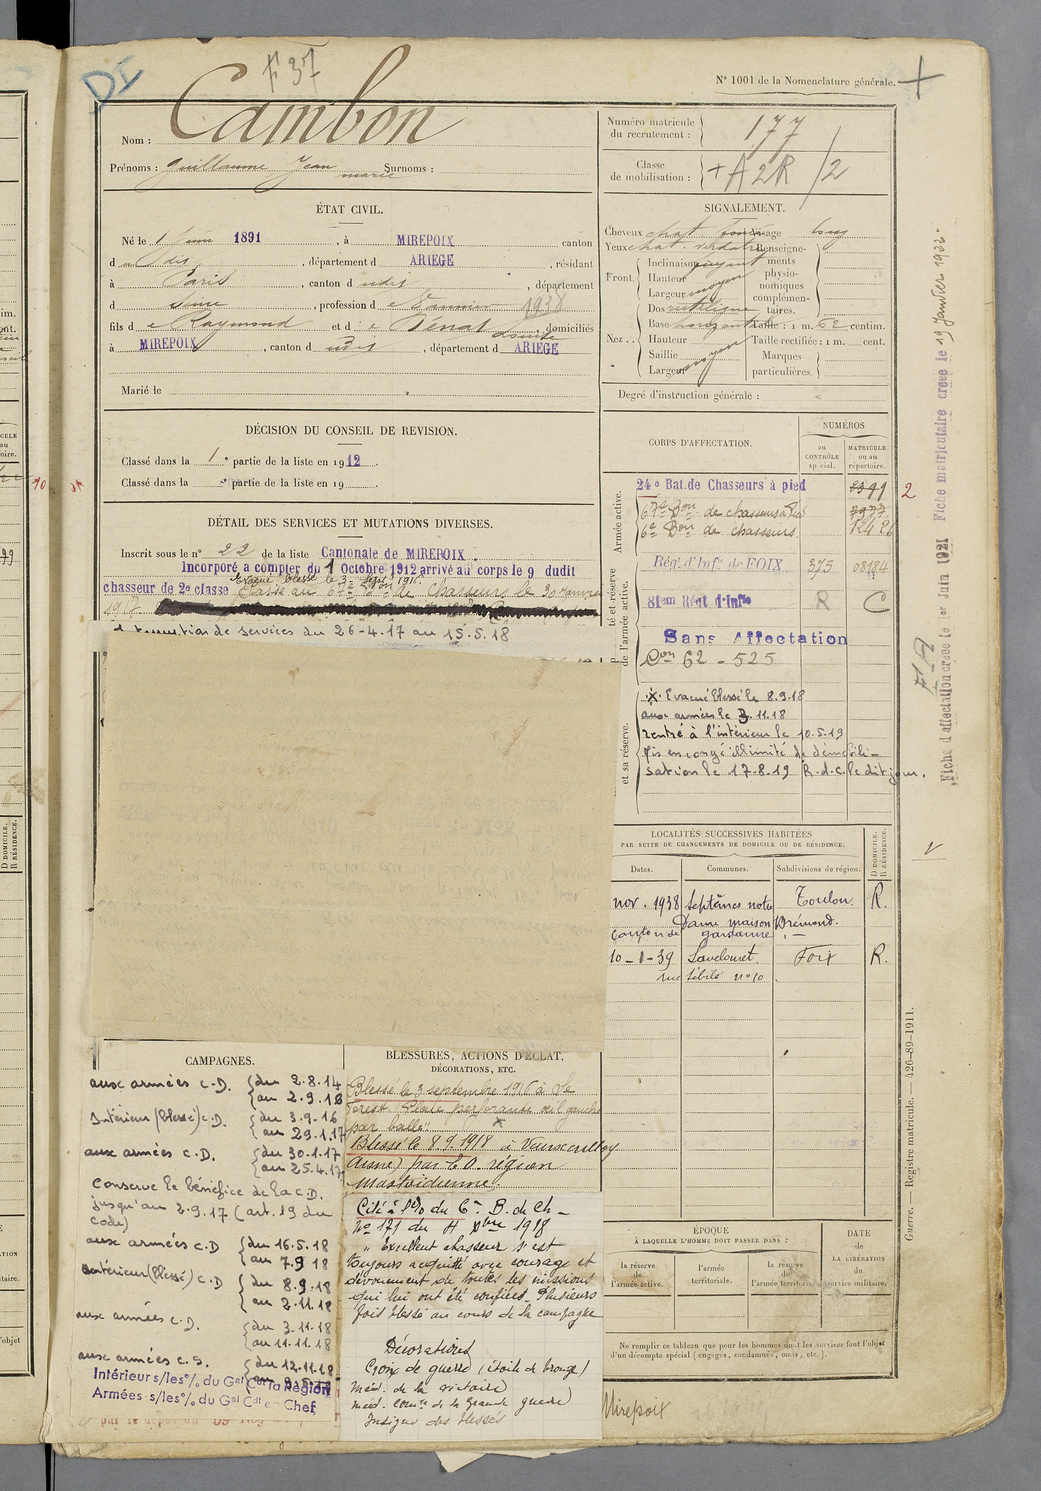 F 37
N° 1001 de la Nomenclature générale.
Nom : Cambon
Prénoms : Guillaume Jean Surnoms :
marie
Numéro matricule
du recrutement : 177
Classe
de mobilisation : + A 2R /2
ÉTAT CIVIL.
Né le 1 Juin 1891, à MIREPOIX canton
d dudit, département d ARIÈGE, résidant
à Paris, canton d udit, département
d Seine, profession d e Vannier 1938
fils d e Raymond et d e Denat Louise, domiciliés
à MIREPOIX, canton d udit, département d ARIÈGE
Marié le
SIGNALEMENT.
Cheveux chat foncé Visage long
Yeux chat verdatre Renseigne-
ments
physio-
nomiques
complémen-
taires.
Front. Inclinaison fuyant
Hauteur moyen
Largeur moyen
Nez . . Dos rectiligne
Base horizontale Taille : 1 m. 62 centim.
Hauteur Taille rectifiée : 1 m. cent.
Saillie Marques
Largeur moyen particulières.
Degré d'instruction générale :
DÉCISION DU CONSEIL DE REVISION.
Classé dans la 1e partie de la liste en 1912.
Classé dans la e partie de la liste en 19 .
DÉTAIL DES SERVICES ET MUTATIONS DIVERSES.
Inscrit sous le n° 22 de la liste Cantonale de MIREPOIX.
Incorporé a compter du 1 Octobre 1912 arrivé au corps le 9 dudit
Evacué blessé le 3 sept. 1916.
chasseur de 2e classe Passé au 67e Bon de Chasseurs le 30 janvier
1917.
de services du 26-4.17 au 15.5.18
CORPS D'AFFECTATION.
NUMÉROS
au
CONTRÔLE
spécial.
MATRICULE
ou au
répertoire.
Armée active.
24e Bat. de Chasseurs à pied
67e Bon de chasseurs à Pied
6e Bon de chasseurs.
Rég. d'Infie de FOIX 375 08184
81em Régt d'Infie R C
Sans Affectation
Don 62 - 525
et réserve
de l'armée active.
et sa réserve.
Evacué blessé le 8.9.18
aux armées le 3.11.18
rentré à l'intérieur le 10.5.19
Mis en congé illimité de démobili-
sation le 17.8.19 R.d.c. le dit jour.
LOCALITÉS SUCCESSIVES HABITÉES
PAR SUITE DE CHANGEMENTS DE DOMICILE OU DE RÉSIDENCE.
Dates. Communes. Subdivisions de région.
D DOMICILE.
R RÉSIDENCE.
nov. 1938 Septèmes notre Toulon. R.
Dame maison Brémond.
canton de gardanne
10-1-39 Lavelanet. Foix R.
rue n° 10
Fiche d'affectation créée le 1er Juin 1921 Fiche matriculaire créée le 19 Janvier 1922.
Guerre. — Registre matricule. — 426-89-1911.
CAMPAGNES.
aux armées C.D. du 2.8.14
au 2.9.16
Intérieur (blessé) C.D. du 3.9.16
au 29.1.17
aux armées C.D. du 30.1.17
au 25.4.17
Conserve le bénéfice de la C.D.
jusqu'au 2.9.17 (art. 19 du
Code)
aux armées C.D du 16.5.18
au 7.9 18
Intérieur (blessé) C.D du 8.9.18
au 2.11.18
aux armées C.D. du 3.11.18
au 11.11.18
aux armées C.S. du 12.11.18
Intérieur s/les °/. du Gal Cdt la Région
Armées s/les °/. du Gal Cdt en Chef.
BLESSURES, ACTIONS D'ÉCLAT,
DÉCORATIONS, ETC.
Blessé le 3 septembre 1916 à Le
Forest. Plaie perforante œil gauche
par balle.
Blessé le 8.9.1918 à
Aisne) par E.O. région
mastoïdienne.
Cité à l'o/o du 6e B. de Ch -
N° 171 du 4 Xbre 1918
" Excellent chasseur s'est
toujours acquitté avec courage et
dévouement de toutes les missions
qui lui ont été confiées. Plusieurs
fois blessé au cours de la campagne
Décorations
Croix de guerre (étoile de bronze)
Méd. de la victoire
Méd. comve de la Grande guerre
Insigne des blessés
ÉPOQUE
À LAQUELLE L'HOMME DOIT PASSER DANS :
la réserve
de
l'armée active.
l'armée
territoriale.
la réserve
de
l'armée territoriale.
DATE
de
LA LIBÉRATION
du
service militaire.
Ne remplir ce tableau que pour les hommes dont les services font l'objet
d'un décompte spécial (engagés, condamnés, omis, etc.).
Mirepoix